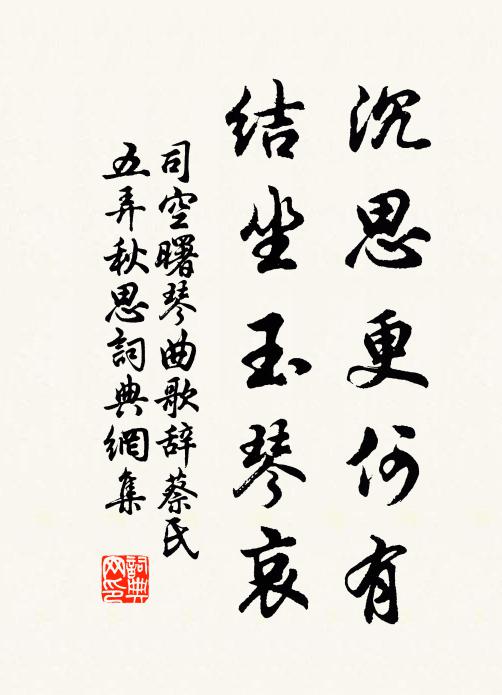 沉思更何有
结坐玉琴哀
司空曙琴曲歌辞蔡氏
五弄秋思詞典網集
詞典网印